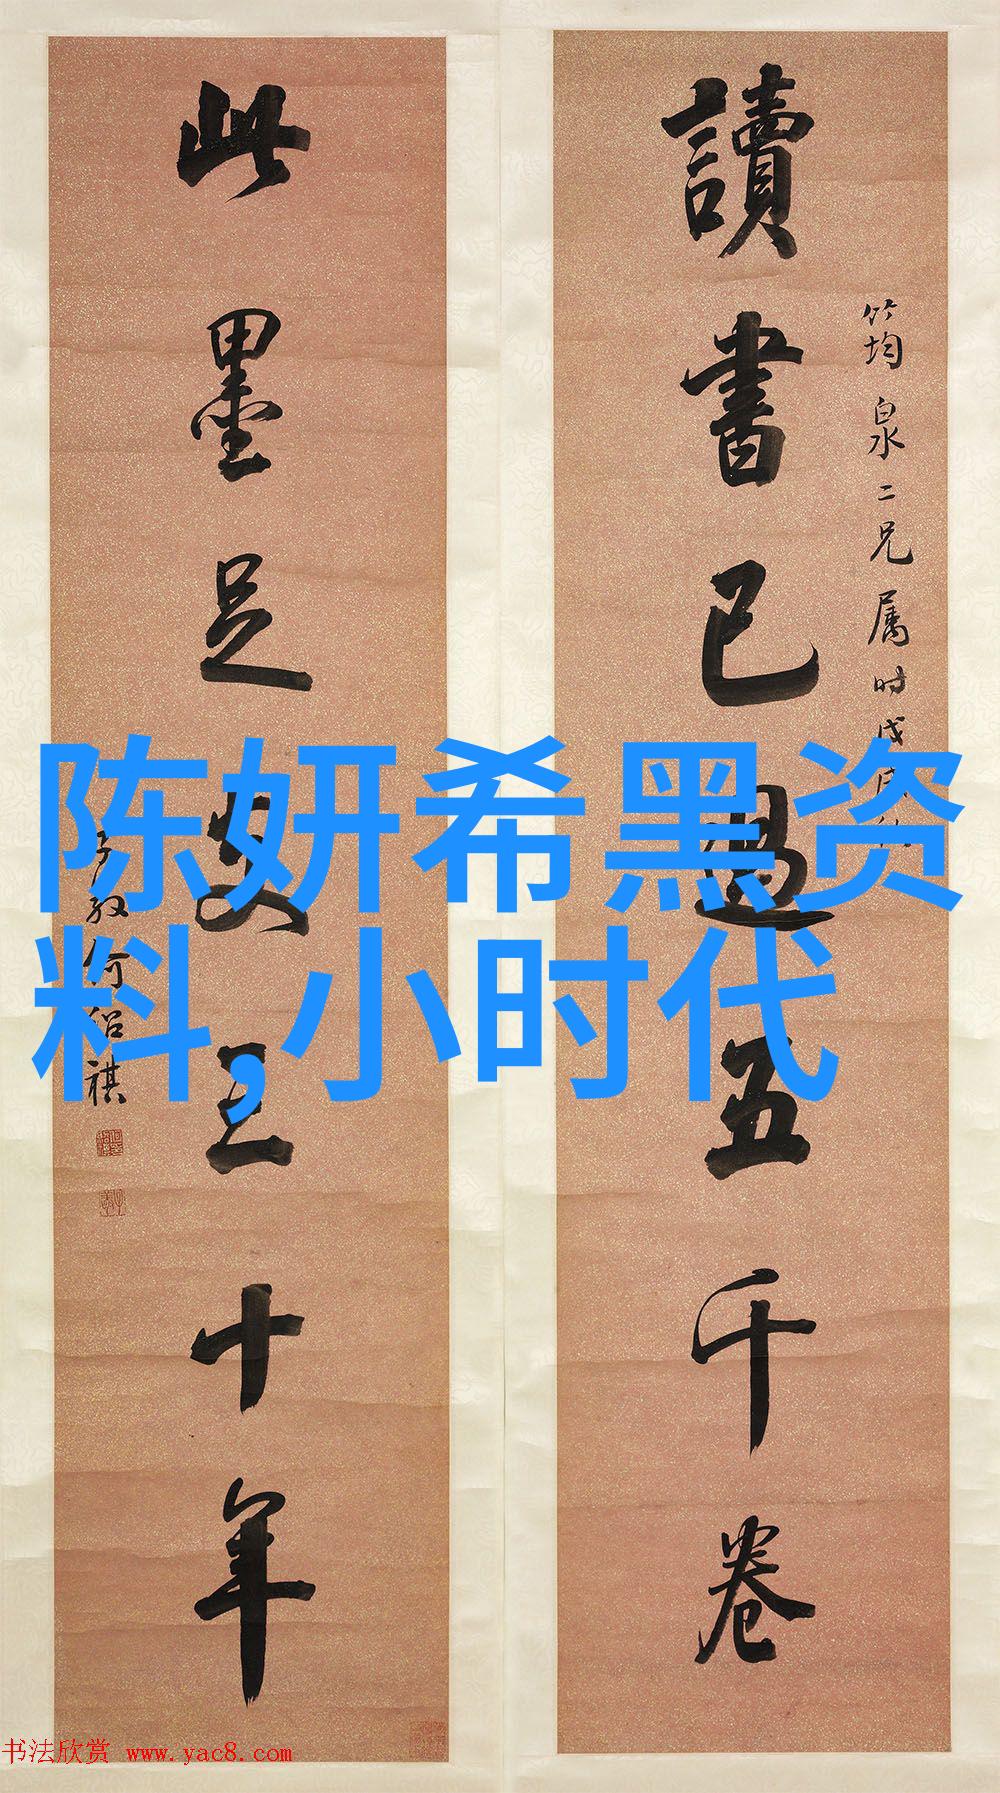 讀書已過五千卷
筠泉二兄属时戊戌
此墨足支三十年
子敬何绍祺
陈妍希黑资
料,小时代
书法欣赏 www.yac8.com